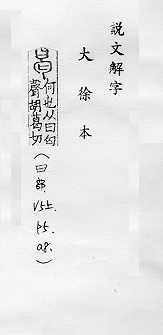 說文解字
大徐本
何也从曰匃
聲胡葛切
(曰部. V5上. P5. 08.)